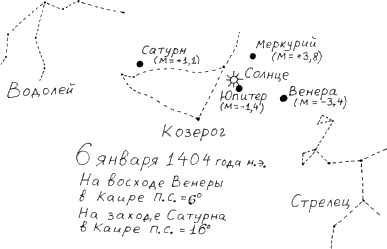 Сатурн
(M=+1,1)
Меркурий
(M=+3,8)
Солнце
Юпитер
(M=-1,4)
Венера
(M=-3,4)
Водолей
Козерог
6 января 1404 года н.э.
На восходе Венеры
в Каире п.с.=6°
На заходе Сатурна
в Каире п.с.=16°
Стрелец